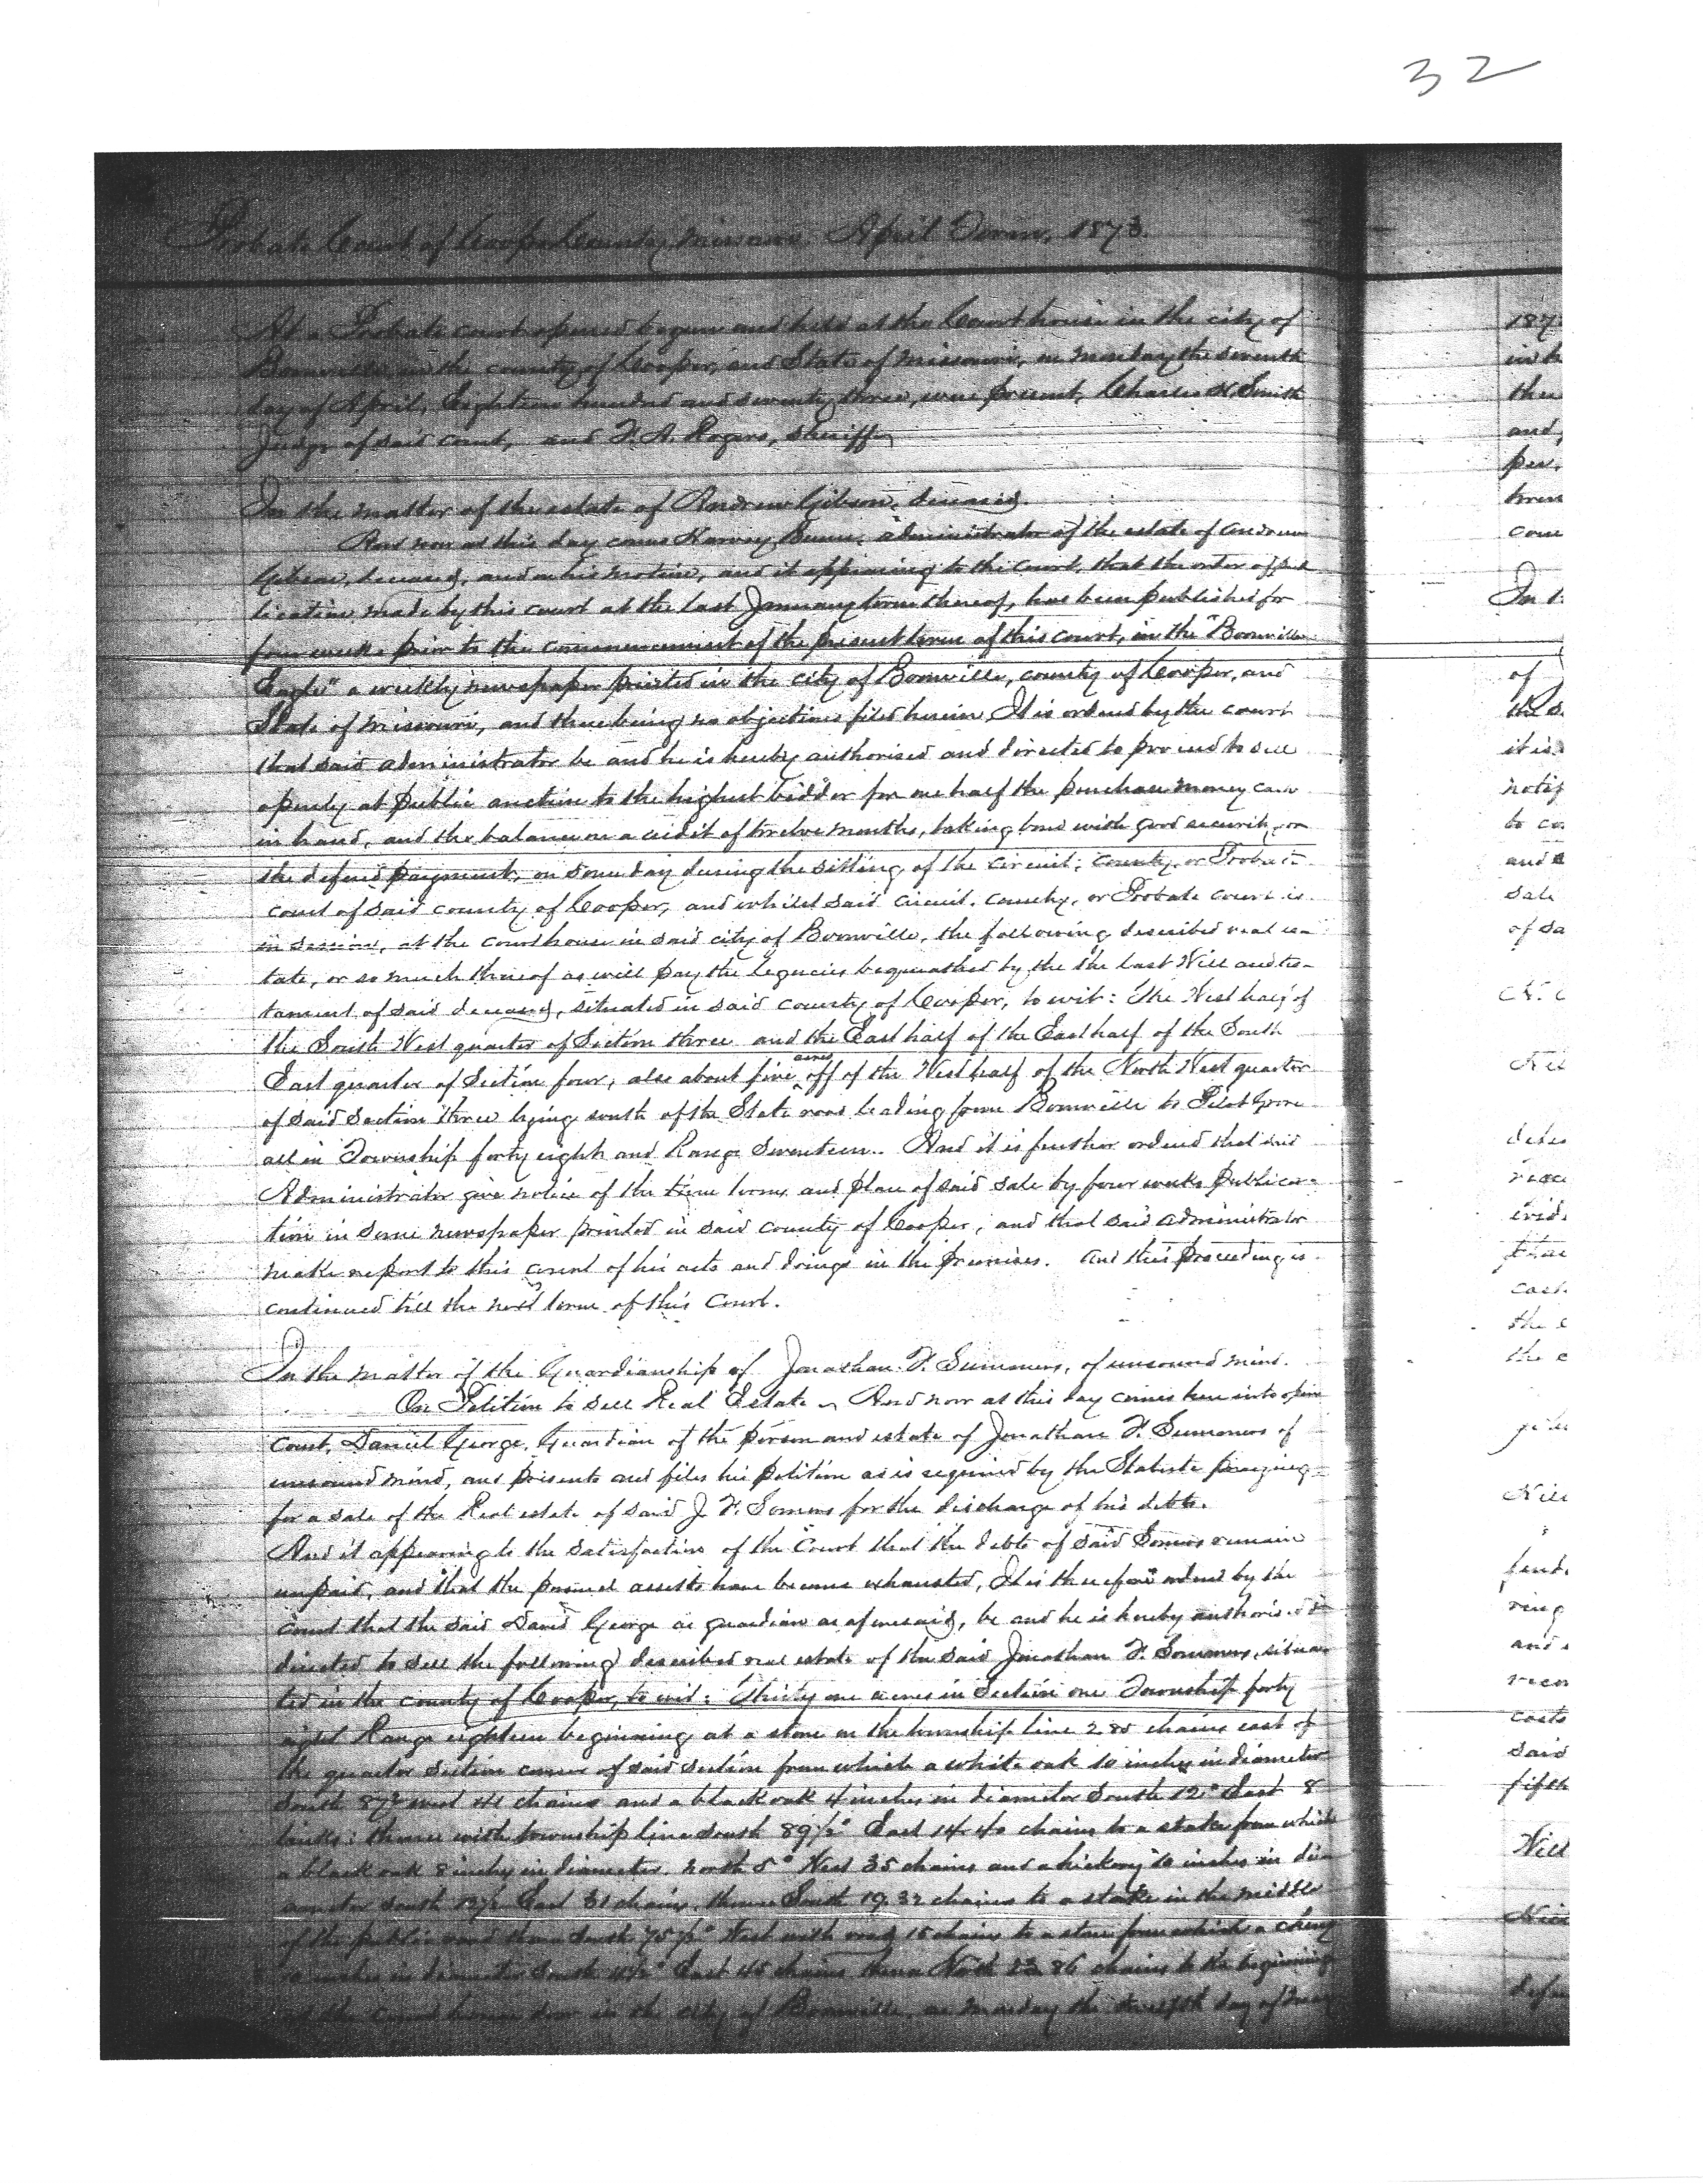 32
Probate Court of Cooper County, Missouri April Term, 1873.
At a Probate court opened begun and held at the Court house in the city of
Boonville in the county of Cooper, and State of Missouri, on Monday the seventh
day of April, Eighteen hundred and seventy three, were present, Charles H. Smith
Judge of said Court, and F. A. Rogers, Sheriff
In the matter of the estate of Andrew Gibson, deceased.
And now at this day comes Harvey Bunce, administrator of the estate of Andrew
Gibson, deceased, and on his motion, and it appearing to the Court, that the order of pub
lication made by this court at the last January term thereof, has been published for
four weeks prior to the commencement of the present term of this court, in the "Boonville
Eagle" a weekly newspaper printed in the city of Boonville, county of Cooper, and
State of Missouri, and there being no objections filed herein It is ordered by the court
that said administrator be and he is hereby authorised and directed to proceed to sell
openly at public auction to the highest bidder for one half the purchase money cash
in hand, and the balance on a credit of twelve months, taking bond with good security on
the deferred payment, on some day during the sitting of the circuit, county, or Probate
court of said county of Cooper, and whilst said circuit, county, or Probate court is
in session, at the courthouse in said city of Boonville, the following described real es-
tate, or so much thereof as will pay the legacies bequeathed by the the last Will and tes-
tament of said deceased, situated in said county of Cooper, to wit: The West half of
the South West quarter of Section three and the East half of the East half of the South
East quarter of Section four, also about five acres off of the West half of the North West quarter
of said Section three lying south of the State road leading from Boonville to Pilot Grove
all in Township forty eight and Range Seventeen. And it is further ordered that said
Administrator give notice of the time terms and place of said sale by four weeks publica-
tion in some newspaper printed in said county of Cooper, and that said administrator
make report to this court of his acts and doings in the premises. And this proceeding is
continued till the next term of this Court.
In the matter of the Guardianship of Jonathan F. Summers, of unsound mind.
On Petition to sell Real Estate And now at this day comes here into open
Court, Daniel George, Guardian of the person and estate of Jonathan F. Summers of
unsound mind, and presents and files his petition as is required by the Statute praying
for a sale of the Real estate of said J. F. Somers for the discharge of his debts.
And it appearing to the satisfaction of the Court that the debts of said Somers remain
unpaid, and that the personal assets have become exhausted, It is therefore ordered by the
Court that the said Daniel George as guardian as aforesaid, be and he is hereby authorised &
directed to sell the following described real estate of the said Jonathan F. Sommers, situa
ted in the county of Cooper, to wit: Thirty one acres in Section one Township forty
eight Range eighteen beginning at a stone on the township line 2.80 chains east of
the quarter section corner of said section from which a white oak 10 inches in diameter
South West chains and a black oak 4 inches in diameter South 12° East 8
links: thence with township line South 89½° East 14.40 chains to a stake from which
a black oak 8 inches in diameter. North 5° West 35 chains and a hickory 10 inches in di
ameter South East 31 chains, thence South 19.32 chains to a stake in the middle
of the public road thence South West with road 15 chains to a stone from which a cherry
inches in diameter South East 45 chains thence North 23.86 chains to the beginning
at the court house door in the city of Boonville, on Monday the twelfth day of May